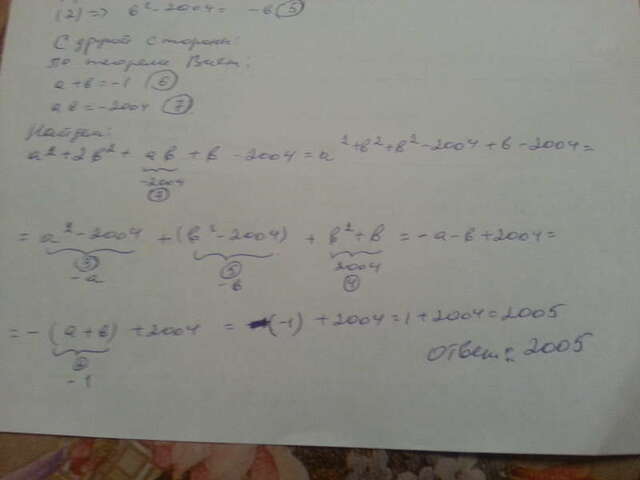 (2) => b² - 2004 = -b (5)
С другой стороны:
По теореме Виет:
a + b = -1 (6)
ab = -2004 (7)
Найдем:
a² + 2b² + ab + b - 2004 = a² + b² + b² - 2004 + b - 2004 =
-2004
(7)
= a² - 2004 + (b² - 2004) + b² + b = -a - b + 2004 =
(3) (5) 2004
-a -b (4)
= - (a + b) + 2004 = -(-1) + 2004 = 1 + 2004 = 2005
-1
Ответ: 2005